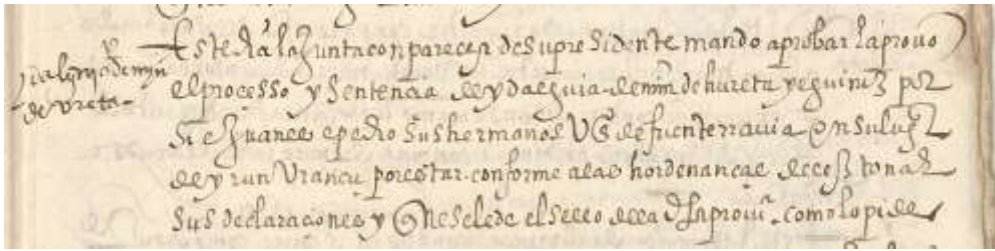 ydalguia de mīn
de vreta
Este día la Junta con parecer de su presidente mando aprobar la provo
el processo y sentencia de ydalguia de mīn de hureta y eguiniz por
si e Juanes e pedro sus hermanos vs de fuenterravia en su lugar
de yrun Vrançu por estar conforme a las hordenanças e
sus declaraciones y que se le de el sello de la provīa como lo pide